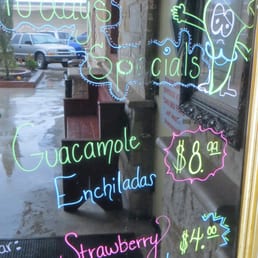 Todays
Spicials
Guacamole $8.99
Enchiladas
Strawberry $4.00
ar: